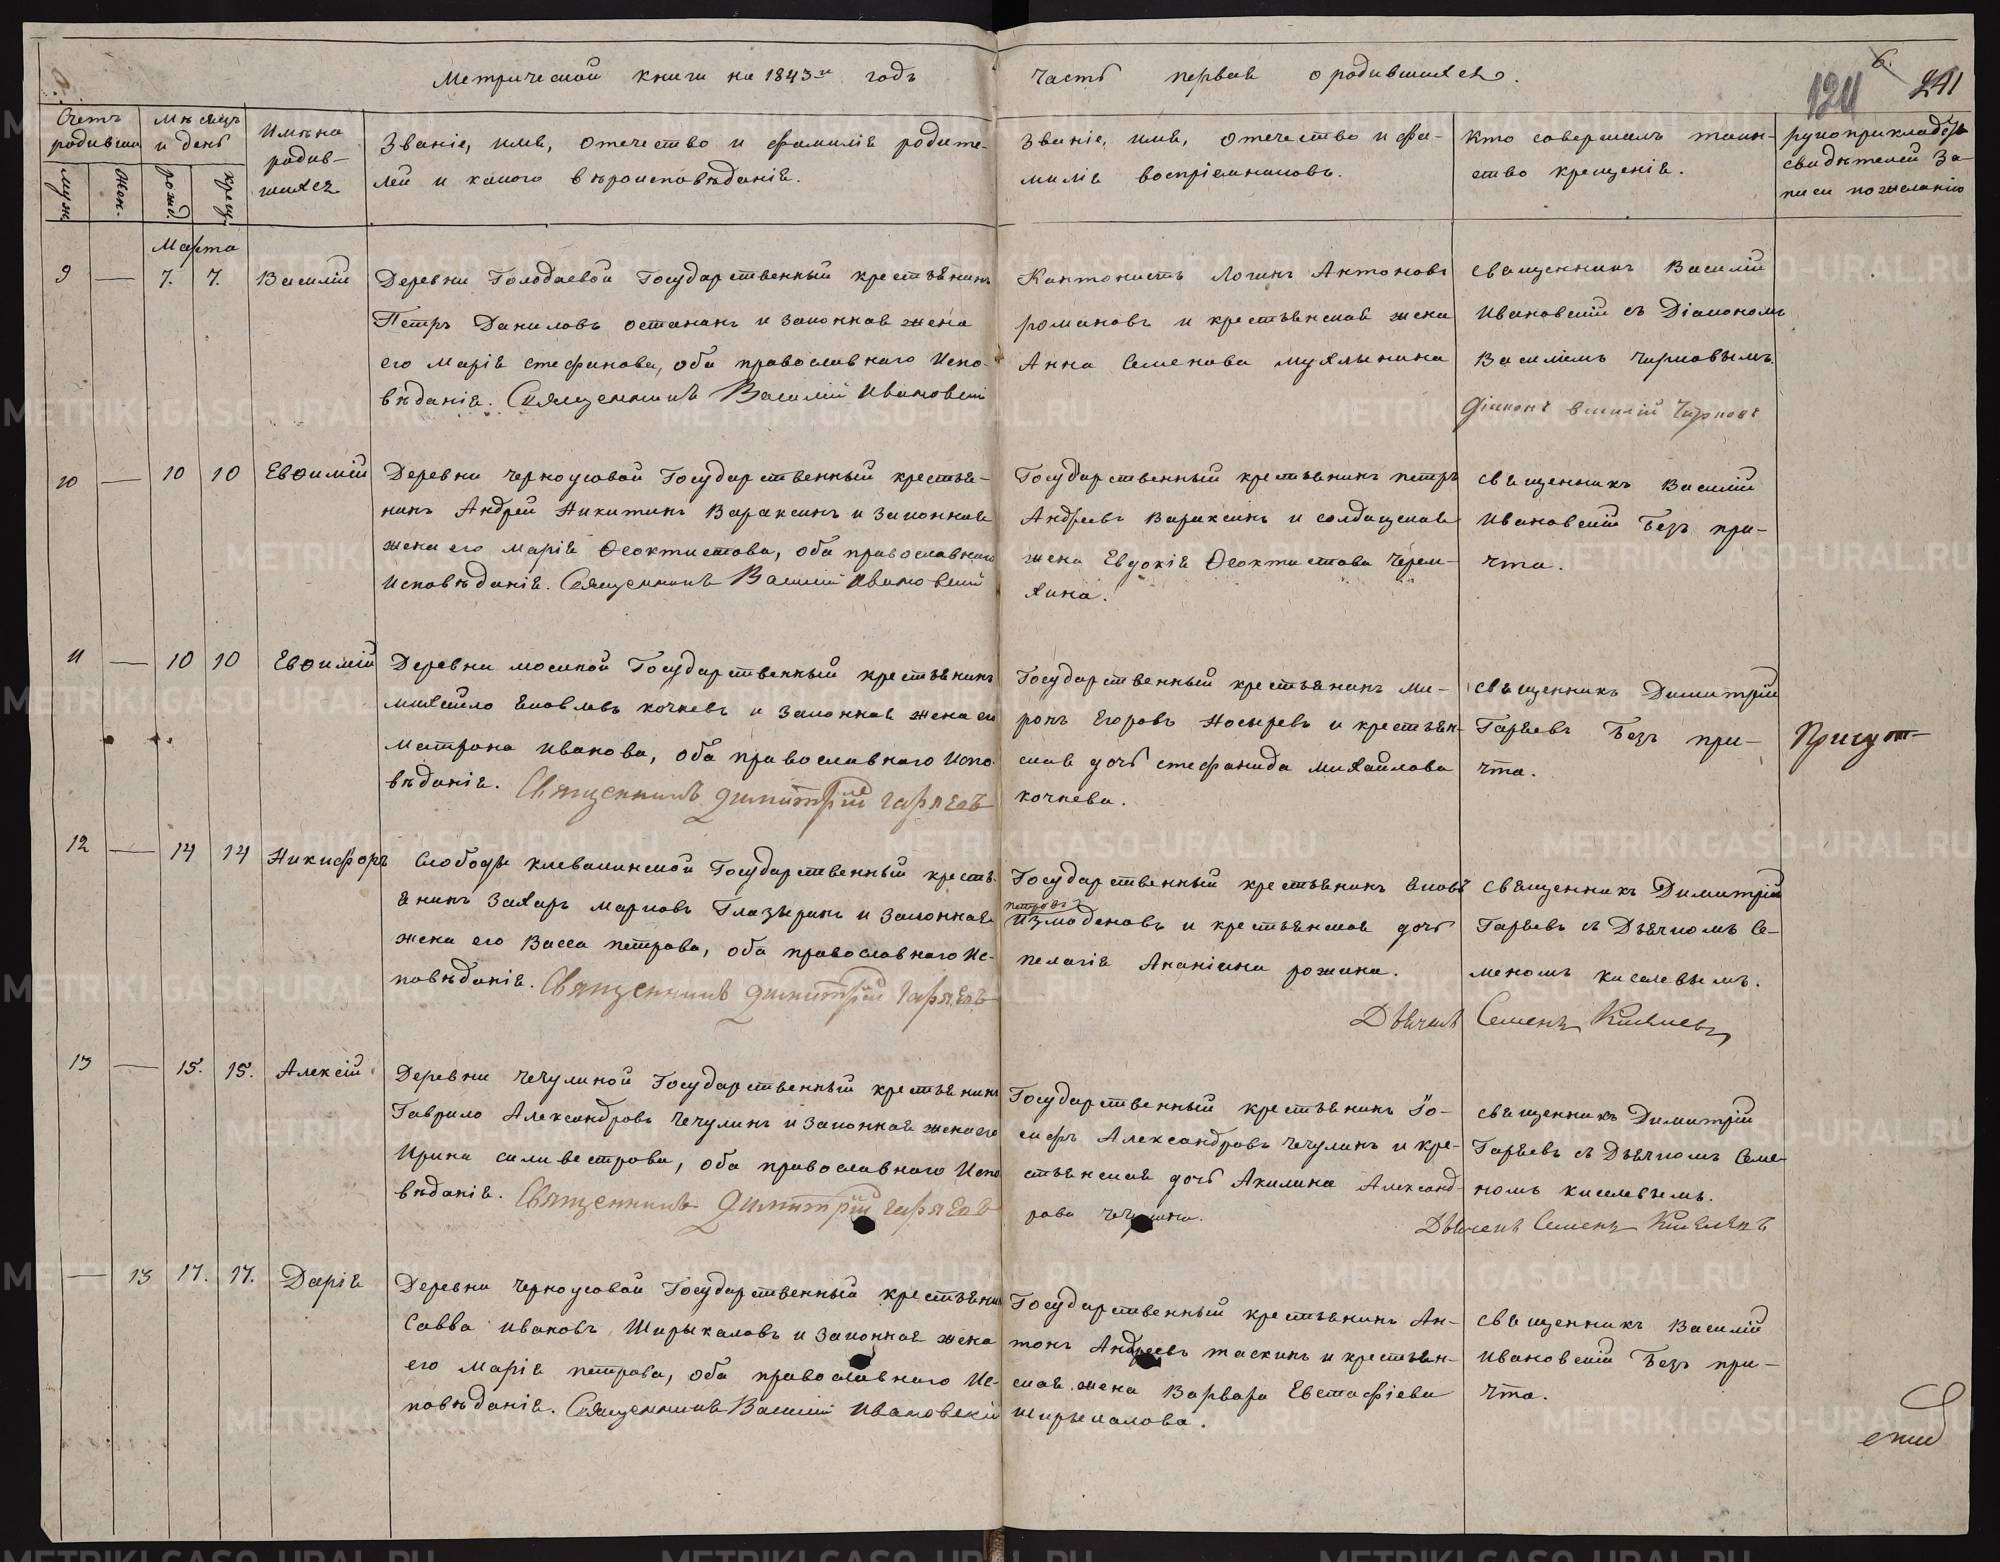 Метрической книги на 1843-й годъ
часть первая о родившихся.
6.
124
241
Счетъ родивших
Мѣсяцъ и день
Имѣна родив-
шихся
Званіе, имя, отечество и фамилія родите-
лей и какого вѣроисповѣданія.
Званіе, имя, отечество и фа-
милія воспріемниковъ.
Кто совершалъ таин-
ство крещенія.
рукоприкладство
свидѣтелей за-
писи по желанію
муж.
жен.
рожд.
крещ.
Марта
9 — 7. 7. Василій
Деревни Голодаевой Государственный крестьянинъ
Петръ Даниловъ Останинъ и законная жена
его Марія Стефанова, оба православнаго испо-
вѣданія. Священникъ Василій Ивановскій
Кантонистъ Логинъ Антоновъ
Романовъ и крестьянская жена
Анна Семенова Мухлынина
Священникъ Василій
Ивановскій съ Діакономъ
Василіемъ Чирковымъ.
Діаконъ Василій Чирковъ
10 — 10 10 Евѳимій
Деревни Черноусовой Государственный крестья-
нинъ Андрей Никитинъ Вараксинъ и законная
жена его Марія Ѳеоктистова, оба православнаго
исповѣданія. Священникъ Василій Ивановскій
Государственный крестьянинъ Петръ
Андреевъ Вараксинъ и солдатская
жена Евдокія Ѳеоктистова Черем-
хина.
Священникъ Василій
Ивановскій безъ при-
чта.
11 — 10 10 Евѳимій
Деревни Мосиной Государственный крестьянинъ
Михайло Яковлевъ Кочневъ и законная жена его
Матрона Иванова, оба православнаго испо-
вѣданія. Священникъ Димитрій Гаряевъ
Государственный крестьянинъ Ми-
ронъ Егоровъ Носыревъ и крестьян-
ская дочь Стефанида Михайлова
Кочнева.
Священникъ Димитрій
Гаряевъ безъ при-
чта.
12 — 14 14 Никифоръ
Слободы Клевакинской Государственный кресть-
янинъ Захаръ Марковъ Глазыринъ и законная
жена его Васса Петрова, оба православнаго ис-
повѣданія. Священникъ Димитрій Гаряевъ
Государственный крестьянинъ Яковъ
Петровъ
Измоденовъ и крестьянская дочь
Пелагія Ананіина Рожина.
Священникъ Димитрій
Гаряевъ съ Дьячкомъ Се-
меномъ Киселевымъ.
Дьячекъ Семенъ Киселевъ
13 — 15. 15. Алексій
Деревни Чечулиной Государственный крестьянинъ
Гаврило Александровъ Чечулинъ и законная жена его
Ирина Силивестрова, оба православнаго испо
вѣданія. Священникъ Димитрій Гаряевъ
Государственный крестьянинъ Іо-
сифъ Александровъ Чечулинъ и кре-
стьянская дочь Акилина Александ-
рова Чечулина.
Священникъ Димитрій
Гаряевъ съ Дьячкомъ Семе-
номъ Киселевымъ.
Дьячекъ Семенъ Киселевъ
— 13 17. 17. Дарія
Деревни Черноусовой Государственный крестьянинъ
Савва Ивановъ Ширыкаловъ и законная жена
его Марія Петрова, оба православнаго ис-
повѣданія. Священникъ Василій Ивановскій
Государственный крестьянинъ Ан-
тонъ Андреевъ Таскинъ и крестьян-
ская жена Варвара Евстафіева
Ширыкалова.
Священникъ Василій
Ивановскій безъ при-
чта.
METRIKI.GASO-URAL.RU